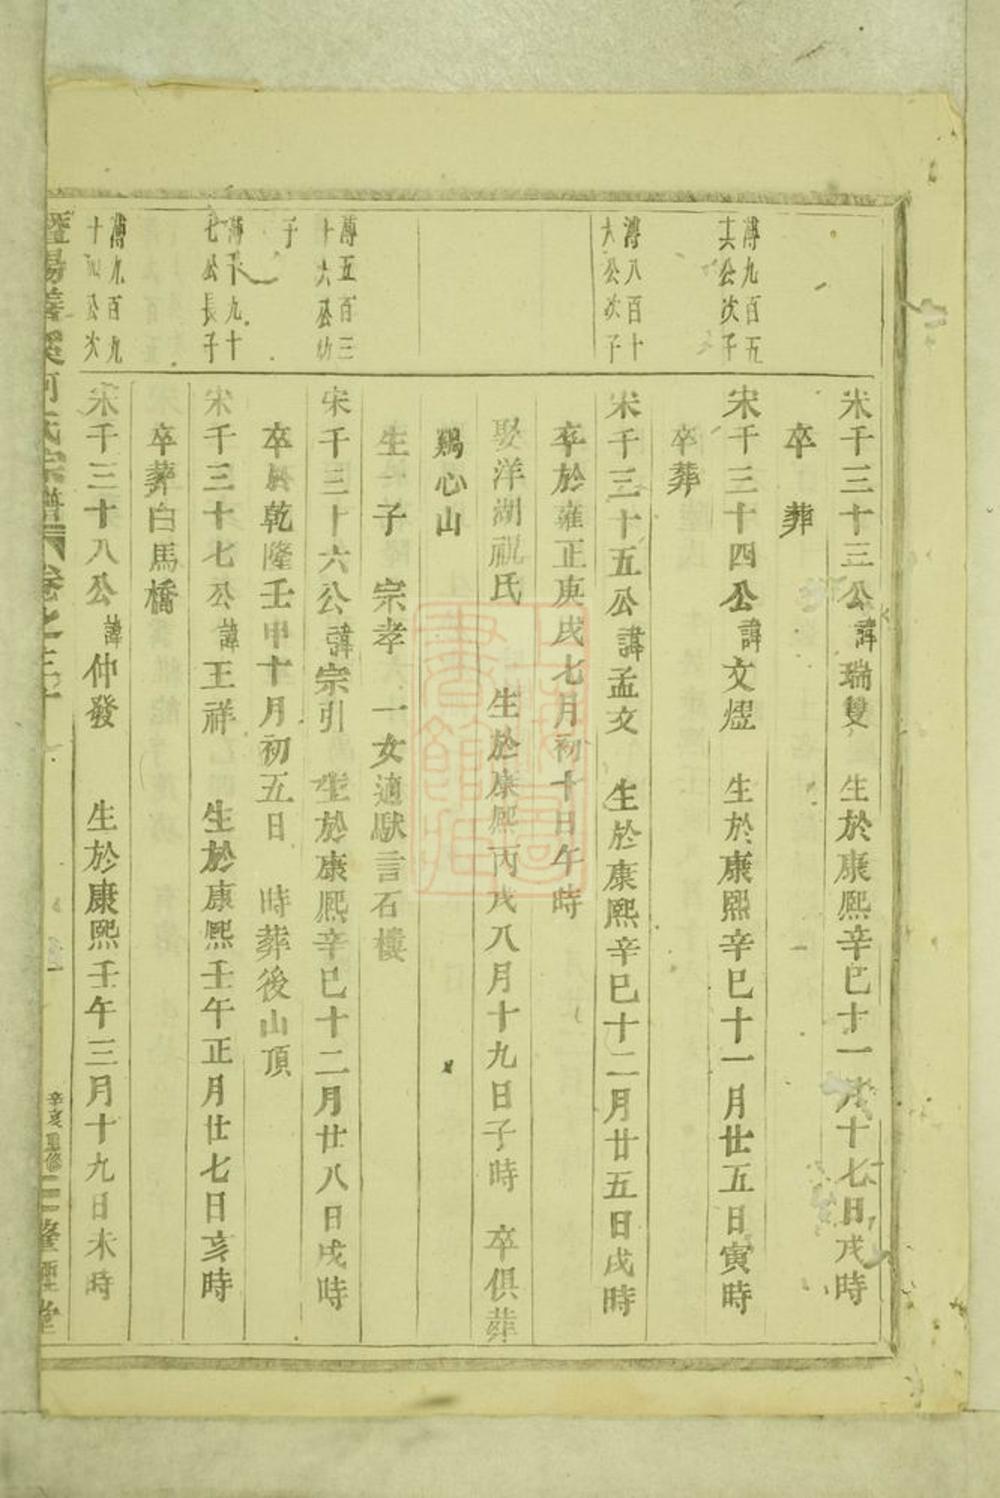 宋千三十三公諱瑞雙 生於康熙辛巳十一月十七日戌時
卒 葬
溥九百五
其公次子
宋千三十四公諱文煜 生於康熙辛巳十一月廿五日寅時
卒葬
溥八百十
六公次子
宋千三十五公諱孟文 生於康熙辛巳十二月廿五日戌時
卒於雍正庚戌七月初十日午時
娶洋湖祝氏 生於康熙丙戌八月十九日子時 卒俱葬
鷄心山
生一子 宗孝 一女適馱言石樓
溥五百三
十六公幼
子
宋千三十六公諱宗引 生於康熙辛巳十二月廿八日戌時
卒於乾隆壬申十月初五日 時葬後山頂
溥千九十
七公長子
宋千三十七公諱王祥 生於康熙壬午正月廿七日亥時
卒葬白馬橋
溥九百九
十四公次
宋千三十八公諱仲發 生於康熙壬午三月十九日未時
何氏宗譜 卷之三十
辛亥重修